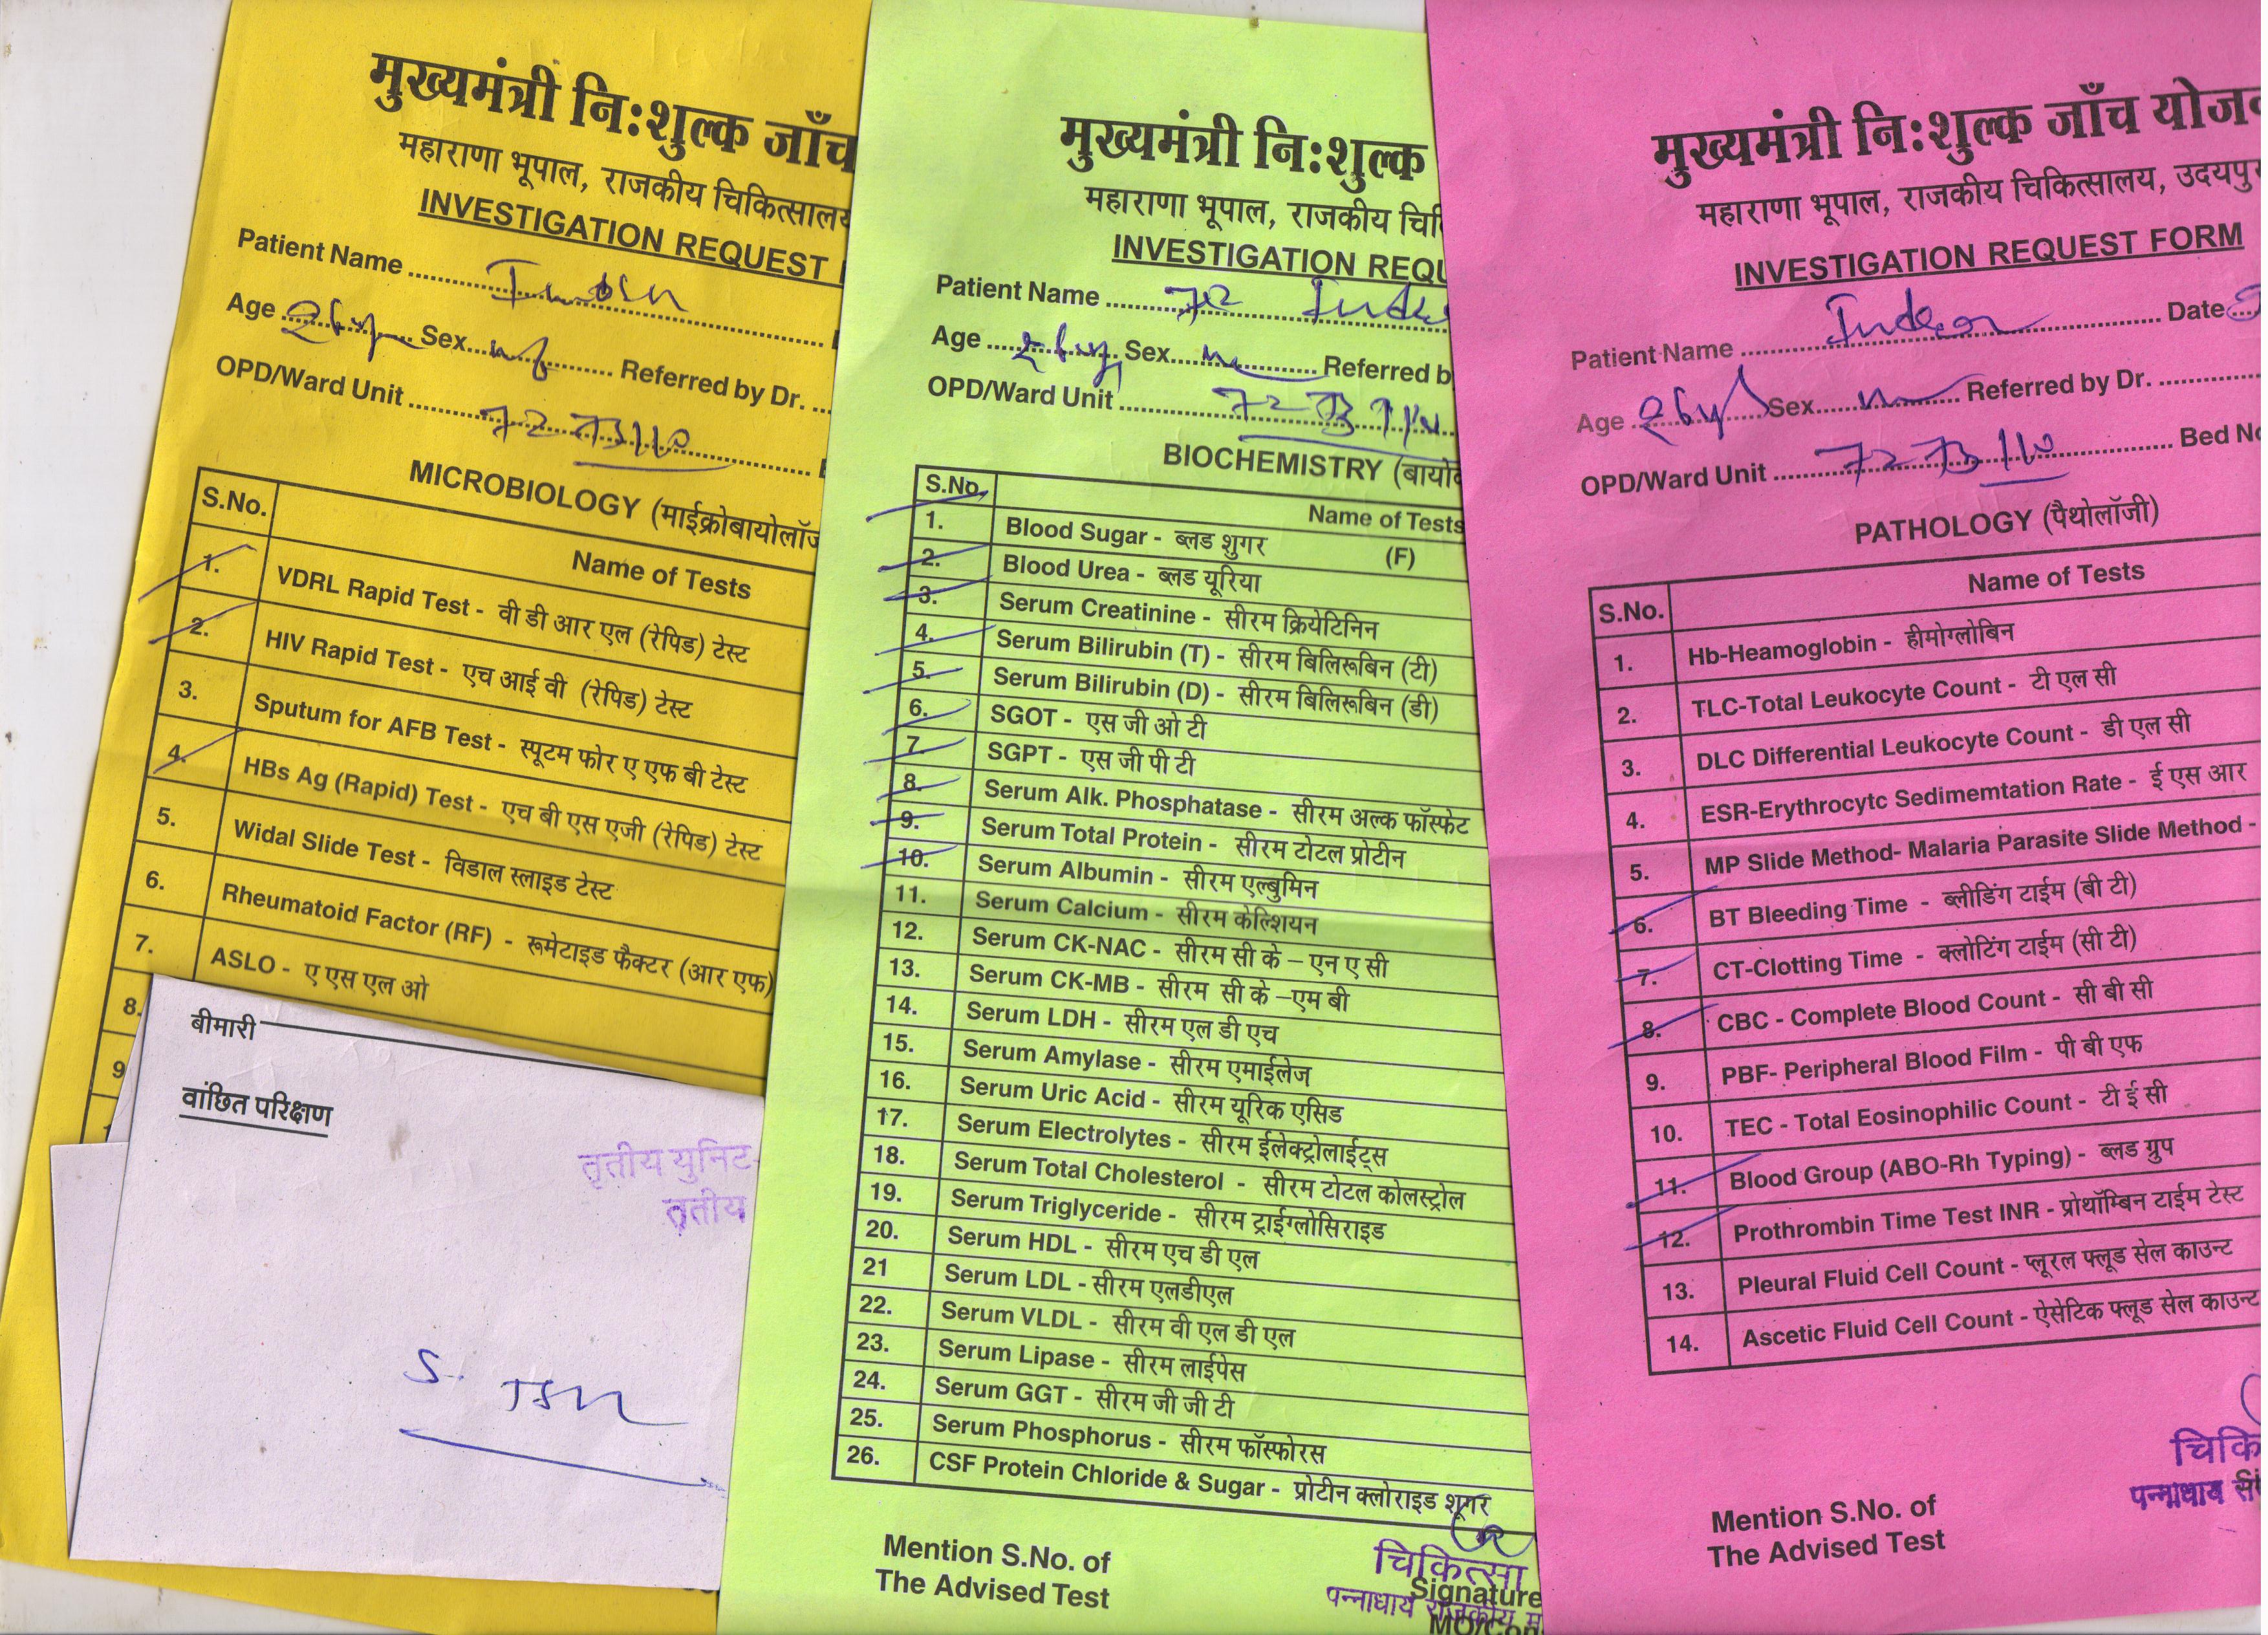 मुख्यमंत्री नि:शुल्क जाँच
महाराणा भूपाल, राजकीय चिकित्सालय
INVESTIGATION REQUEST
Patient Name
Age 26y Sex Referred by Dr.
OPD/Ward Unit 72 73110
MICROBIOLOGY (माईक्रोबायोलॉज
S.No. Name of Tests
1. VDRL Rapid Test - वी डी आर एल (रेपिड) टेस्ट
2. HIV Rapid Test - एच आई वी (रेपिड) टेस्ट
3. Sputum for AFB Test - स्पूटम फोर ए एफ बी टेस्ट
4. HBs Ag (Rapid) Test - एच बी एस एजी (रेपिड) टेस्ट
5. Widal Slide Test - विडाल स्लाइड टेस्ट
6. Rheumatoid Factor (RF) - रूमेटाइड फैक्टर (आर एफ)
7. ASLO - ए एस एल ओ
8.
9
बीमारी
वांछित परिक्षण
तृतीय युनिट-
तृतीय
S.
मुख्यमंत्री नि:शुल्क
महाराणा भूपाल, राजकीय चि
INVESTIGATION REQU
Patient Name
Age 26y Sex m Referred b
OPD/Ward Unit 72 73
BIOCHEMISTRY (बायो
S.No. Name of Tests
1. Blood Sugar - ब्लड शुगर (F)
2. Blood Urea - ब्लड यूरिया
3. Serum Creatinine - सीरम क्रियेटिनिन
4. Serum Bilirubin (T) - सीरम बिलिरूबिन (टी)
5. Serum Bilirubin (D) - सीरम बिलिरूबिन (डी)
6. SGOT - एस जी ओ टी
7. SGPT - एस जी पी टी
8. Serum Alk. Phosphatase - सीरम अल्क फॉस्फेट
9. Serum Total Protein - सीरम टोटल प्रोटीन
10. Serum Albumin - सीरम एल्बुमिन
11. Serum Calcium - सीरम केल्शियन
12. Serum CK-NAC - सीरम सी के – एन ए सी
13. Serum CK-MB - सीरम सी के –एम बी
14. Serum LDH - सीरम एल डी एच
15. Serum Amylase - सीरम एमाईलेज
16. Serum Uric Acid - सीरम यूरिक एसिड
17. Serum Electrolytes - सीरम ईलेक्ट्रोलाईट्स
18. Serum Total Cholesterol - सीरम टोटल कोलस्ट्रोल
19. Serum Triglyceride - सीरम ट्राईग्लोसिराइड
20. Serum HDL - सीरम एच डी एल
21 Serum LDL - सीरम एलडीएल
22. Serum VLDL - सीरम वी एल डी एल
23. Serum Lipase - सीरम लाईपेस
24. Serum GGT - सीरम जी जी टी
25. Serum Phosphorus - सीरम फॉस्फोरस
26. CSF Protein Chloride & Sugar - प्रोटीन क्लोराइड शूगर
Mention S.No. of
The Advised Test
चिकित्सा
Signature
पन्नाधाय राजकीय म
MO/Con
मुख्यमंत्री नि:शुल्क जाँच योज
महाराणा भूपाल, राजकीय चिकित्सालय, उदयपुर
INVESTIGATION REQUEST FORM
Patient Name Date
Age 26y Sex m Referred by Dr.
OPD/Ward Unit 72 73 Bed No
PATHOLOGY (पैथोलॉजी)
S.No. Name of Tests
1. Hb-Heamoglobin - हीमोग्लोबिन
2. TLC-Total Leukocyte Count - टी एल सी
3. DLC Differential Leukocyte Count - डी एल सी
4. ESR-Erythrocytc Sedimemtation Rate - ई एस आर
5. MP Slide Method- Malaria Parasite Slide Method -
6. BT Bleeding Time - ब्लीडिंग टाईम (बी टी)
7. CT-Clotting Time - क्लोटिंग टाईम (सी टी)
8. CBC - Complete Blood Count - सी बी सी
9. PBF- Peripheral Blood Film - पी बी एफ
10. TEC - Total Eosinophilic Count - टी ई सी
11. Blood Group (ABO-Rh Typing) - ब्लड ग्रुप
12. Prothrombin Time Test INR - प्रोथॉम्बिन टाईम टेस्ट
13. Pleural Fluid Cell Count - प्लूरल फ्लूड सेल काउन्ट
14. Ascetic Fluid Cell Count - ऐसेटिक फ्लूड सेल काउन्ट
Mention S.No. of
The Advised Test
चिकि
पन्नाधाय